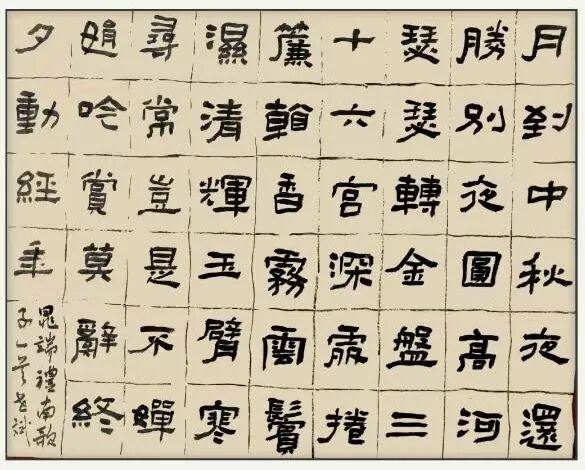 月到中秋夜還
勝別夜圓高河
瑟瑟轉金盤三
十六宮深處捲
簾看香霧雲鬟
濕清輝玉臂寒
尋常豈是不嬋
娟吟賞莫辭終
夕動經年
晁端禮南歌
子一首